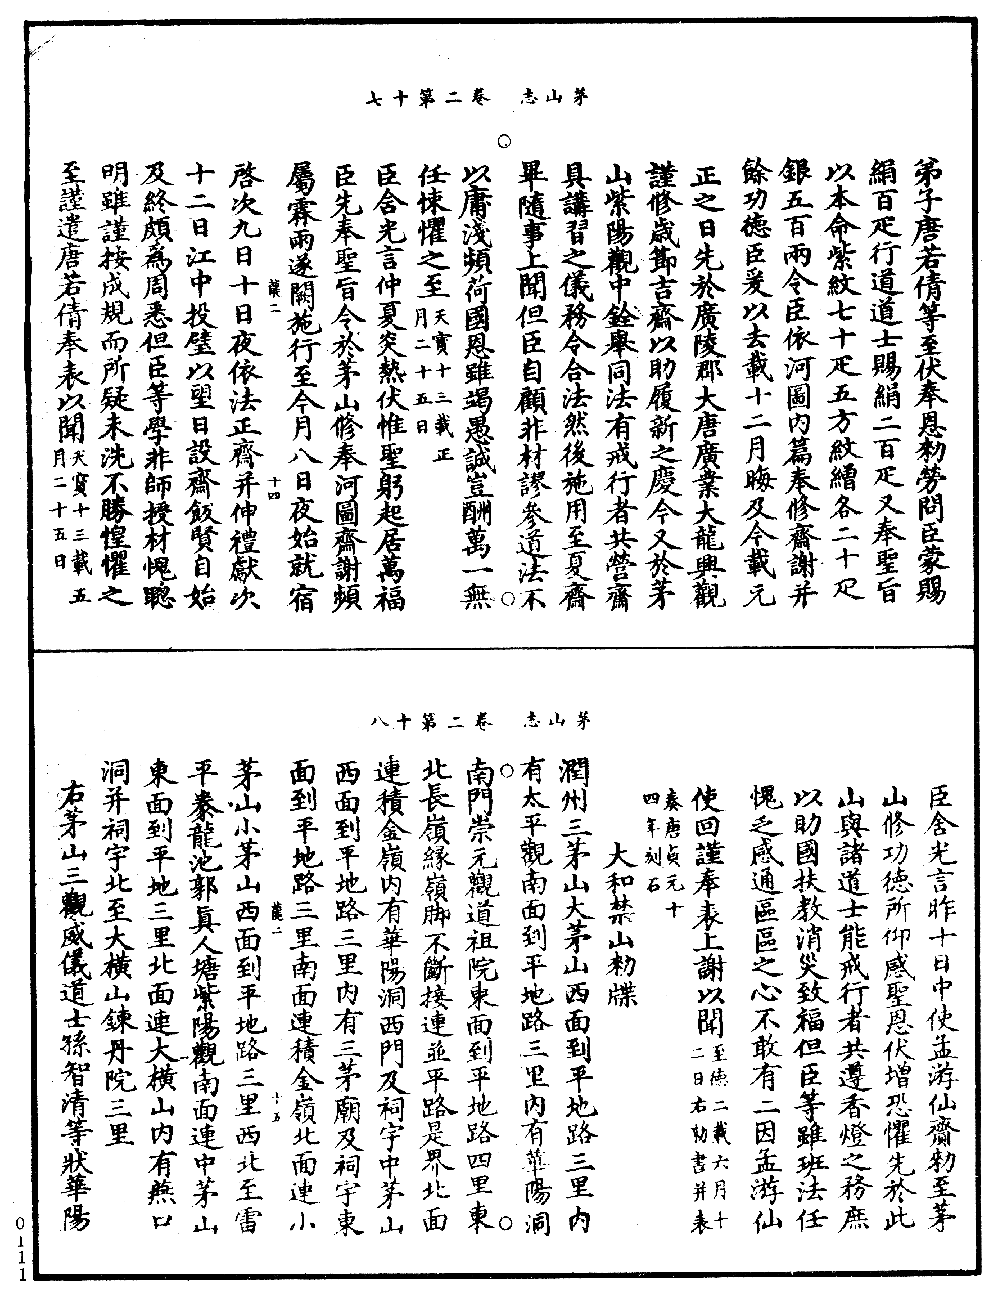 茅山志　卷二第十七
弟子唐若倩等至伏奉恩勑勞問臣蒙賜
絹百疋行道道士賜絹二百疋又奉聖旨
以本命紫紋七十疋五方紋繒各二十疋
銀五百兩令臣依河圖內篇奉修齋謝并
餘功德臣爰以去載十二月晦及今載元
正之日先於廣陵郡大唐廣業大龍興觀
謹修歲節吉齋以助履新之慶今又於茅
山紫陽觀中銓舉同法有戒行者共營齋
具講習之儀務令合法然後施用至夏齋
畢隨事上聞但臣自顧非材謬參道法不
以庸淺頻荷國恩雖竭愚誠豈酬萬一無
任悚懼之至天寶十三載正月二十五日
臣含光言仲夏炎熱伏惟聖躬起居萬福
臣先奉聖旨令於茅山修奉河圖齋謝頻
屬霖雨遂闕施行至今月八日夜始就宿
䕫二　十四
啓次九日十日夜依法正齋并伸禮獻次
十二日江中投璧以聖日設齋飯賢自始
及終頗為周悉但臣等學非師授材愧聰
明雖謹按成規而所疑未洗不勝惶懼之
至謹遣唐若倩奉表以聞天寶十三載五月二十五日
茅山志　卷二第十八
臣含光言昨十日中使孟游仙齎勑至茅
山修功德所仰感聖恩伏增恐懼先於此
山與諸道士能戒行者共遵香燈之務庶
以助國扶教消災致福但臣等雖班法任
愧乏感通區區之心不敢有二因孟游仙
使回謹奉表上謝以聞至德二載六月十二日右勑書并表
奏唐貞元十四年刻石
大和禁山勑牒
潤州三茅山大茅山西面到平地路三里內
有太平觀南面到平地路三里內有華陽洞
南門崇元觀道祖院東面到平地路四里東
北長嶺緣嶺脚不斷接連並平路是界北面
連積金嶺內有華陽洞西門及祠宇中茅山
西面到平地路三里內有三茅廟及祠宇東
面到平地路三里南面連積金嶺北面連小
䕫二　十五
茅山小茅山西面到平地路三里西北至雷
平豢龍池郭真人塘紫陽觀南面連中茅山
東面到平地三里北面連大橫山內有無口
洞并祠宇北至大橫山鍊丹院三里
右茅山三觀威儀道士孫智清等狀華陽
0111